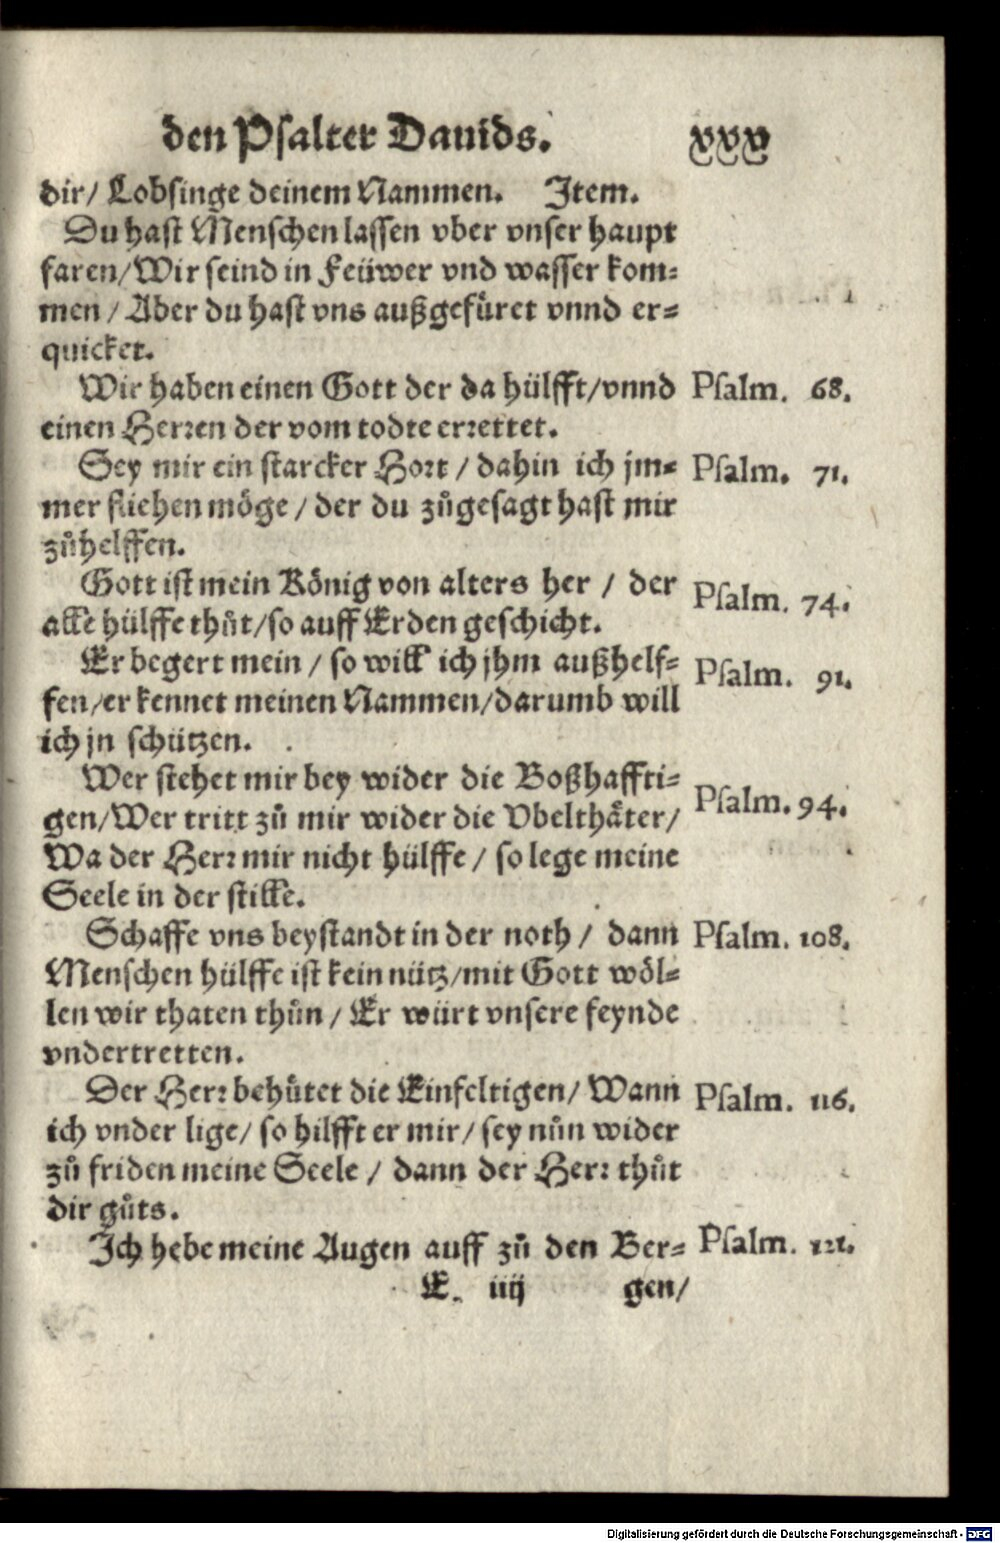 den Psalter Dauids. xxx
dir/ Lobsinge deinem Nammen. Item.
Du hast Menschen lassen vber vnser haupt
faren/Wir seind in Feüwer vnd wasser kom⸗
men / Aber du hast vns außgefüret vnnd er⸗
quicket.
Wir haben einen Gott der da hülfft/vnnd Psalm. 68.
einen Herren der vom todte errettet.
Sey mir ein starcker Hort / dahin ich jm⸗ Psalm. 71.
mer fliehen möge / der du zůgesagt hast mir
zůhelffen.
Gott ist mein König von alters her / der Psalm. 74.
alle hülffe thůt/so auff Erden geschicht.
Er begert mein / so will ich jhm außhelf⸗ Psalm. 91.
fen/er kennet meinen Nammen/darumb will
ich jn schützen.
Wer stehet mir bey wider die Boßhaffti⸗ Psalm. 94.
gen/Wer tritt zů mir wider die Vbelthäter/
Wa der Herr mir nicht hülffe / so lege meine
Seele in der stille.
Schaffe vns beystandt in der noth / dann Psalm. 108.
Menschen hülffe ist kein nütz/mit Gott wöl⸗
len wir thaten thůn / Er würt vnsere feynde
vndertretten.
Der Herr behůtet die Einfeltigen/ Wann Psalm. 116.
ich vnder lige/ so hilfft er mir/ sey nůn wider
zů friden meine Seele / dann der Herr thůt
dir gůts.
Ich hebe meine Augen auff zů den Ber⸗ Psalm. 121.
E. iiij gen/
Digitalisierung gefördert durch die Deutsche Forschungsgemeinschaft - DFG